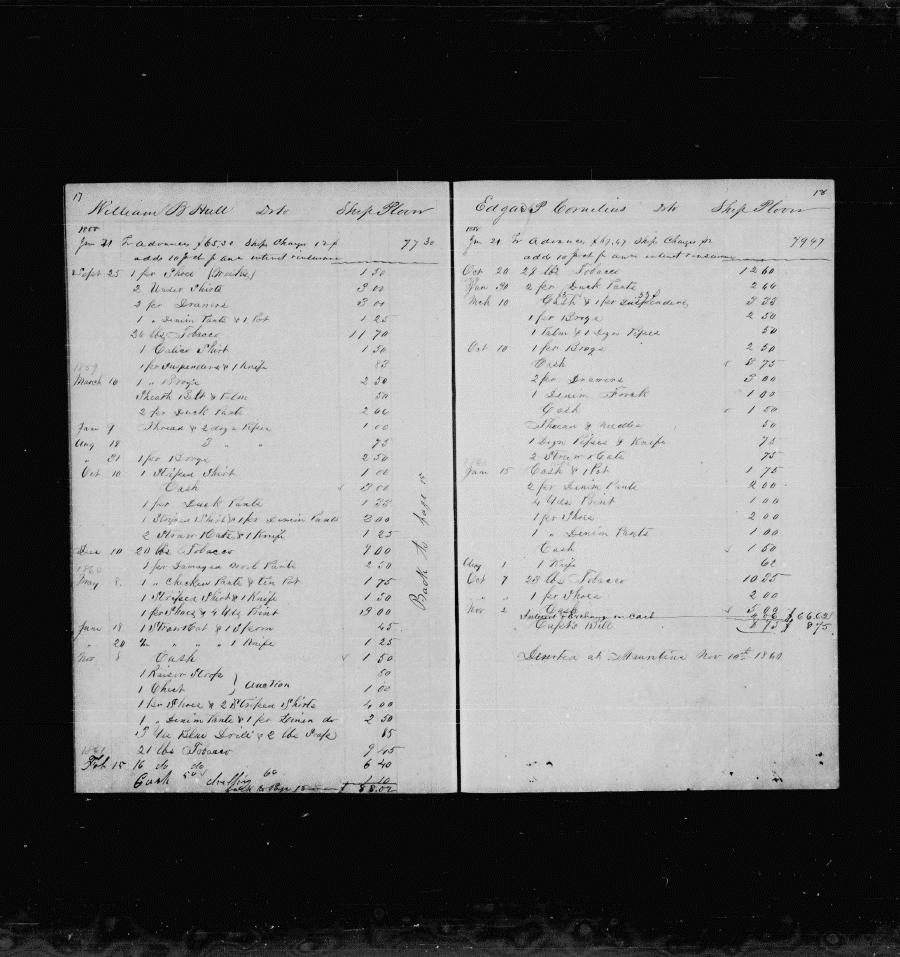 17
William B Hull Dr to Ship Plover
1858
Jan 21 To advances $65.50 Ship Charges 12 $ 77 50
adds 10 pr ct pr ann interest insurance
Sept 25 1 per Shoes 1 50
2 Under Shirts 3 00
2 per Drawers 3 00
1 " Denim Pants & 1 Pot 1 25
26 lbs Tobacco 11 70
1 Calico Shirt 1 50
1 per Suspenders & 1 Knife 83
1859
March 10 1 " Brogs 2 50
Sheath Belt & Palm 50
2 per Duck Pants 2 66
June 9 Thread & 2 dozn Pipes 1 00
Aug 18 3 " " 75
" 31 1 per Brogs 2 50
Oct 10 1 Striped Shirt 1 00
Cash 3 00
1 per Duck Pants 1 33
1 Striped Shirt & 1 per Denim Pants 2 00
2 Straw Hats & 1 Knife 1 25
Dec 10 20 lbs Tobacco 9 00
1860 1 per Damaged Pants 2 50
May 8 1 " Checked Pants & Tin Pot 1 75
1 Striped Shirt & 1 Knife 1 50
1 per Shoes & 4 Yds Print 3 00
June 18 1 Straw Hat & 1 Spoon 45
" 20 " " " 1 Knife 1 25
Nov 8 Cash 1 50
1 Razor Strop 50
1 Chest } Auction 1 00
1 per Shoes & 2 Striped Shirts 4 00
1 " Denim Pants & 1 per do 2 50
Yds Blue Drill & 2 lbs 85
1861 21 lbs Tobacco 9 45
Feb 15 16 do do 6 40
Cash 50 60 1 10
back to Page 15 $ 88.02
Back to page 15
18
Edgar P Cornelius Dr to Ship Plover
1858
Jan 21 To advances $67.47 Ship Charges 12 79 47
adds 10 pr ct pr ann interest insurance
Oct 20 28 lbs Tobacco 12 60
Jan 30 2 per Duck Pants 2 66
Mch 10 Cash & 1 per Suspenders 3 33
1 per Brogs 2 50
1 Palm & 1 Dozn Pipes 50
Oct 10 1 per Brogs 2 50
Cash 75
2 per Drawers 3 00
1 Denim Frock 1 00
Cash 1 50
Thread & Needles 50
1 Dozn Pipes & Knife 75
2 Straw Hats 75
1860
June 15 Cash & 1 Pot 1 75
2 per Denim Pants 2 00
4 Yds Print 1 00
1 per Shoes 2 00
1 " Denim Pants 1 00
Cash 1 50
Aug 1 1 Knife 62
Oct 7 23 lbs Tobacco 10 35
" " 1 per Shoes 2 00
Nov 2 Cash 5 00
Interest & exchange on cash $ 66.62
Capts Bill 8 75 $ 8 75
Deserted at Mauritius Nov 10th 1860